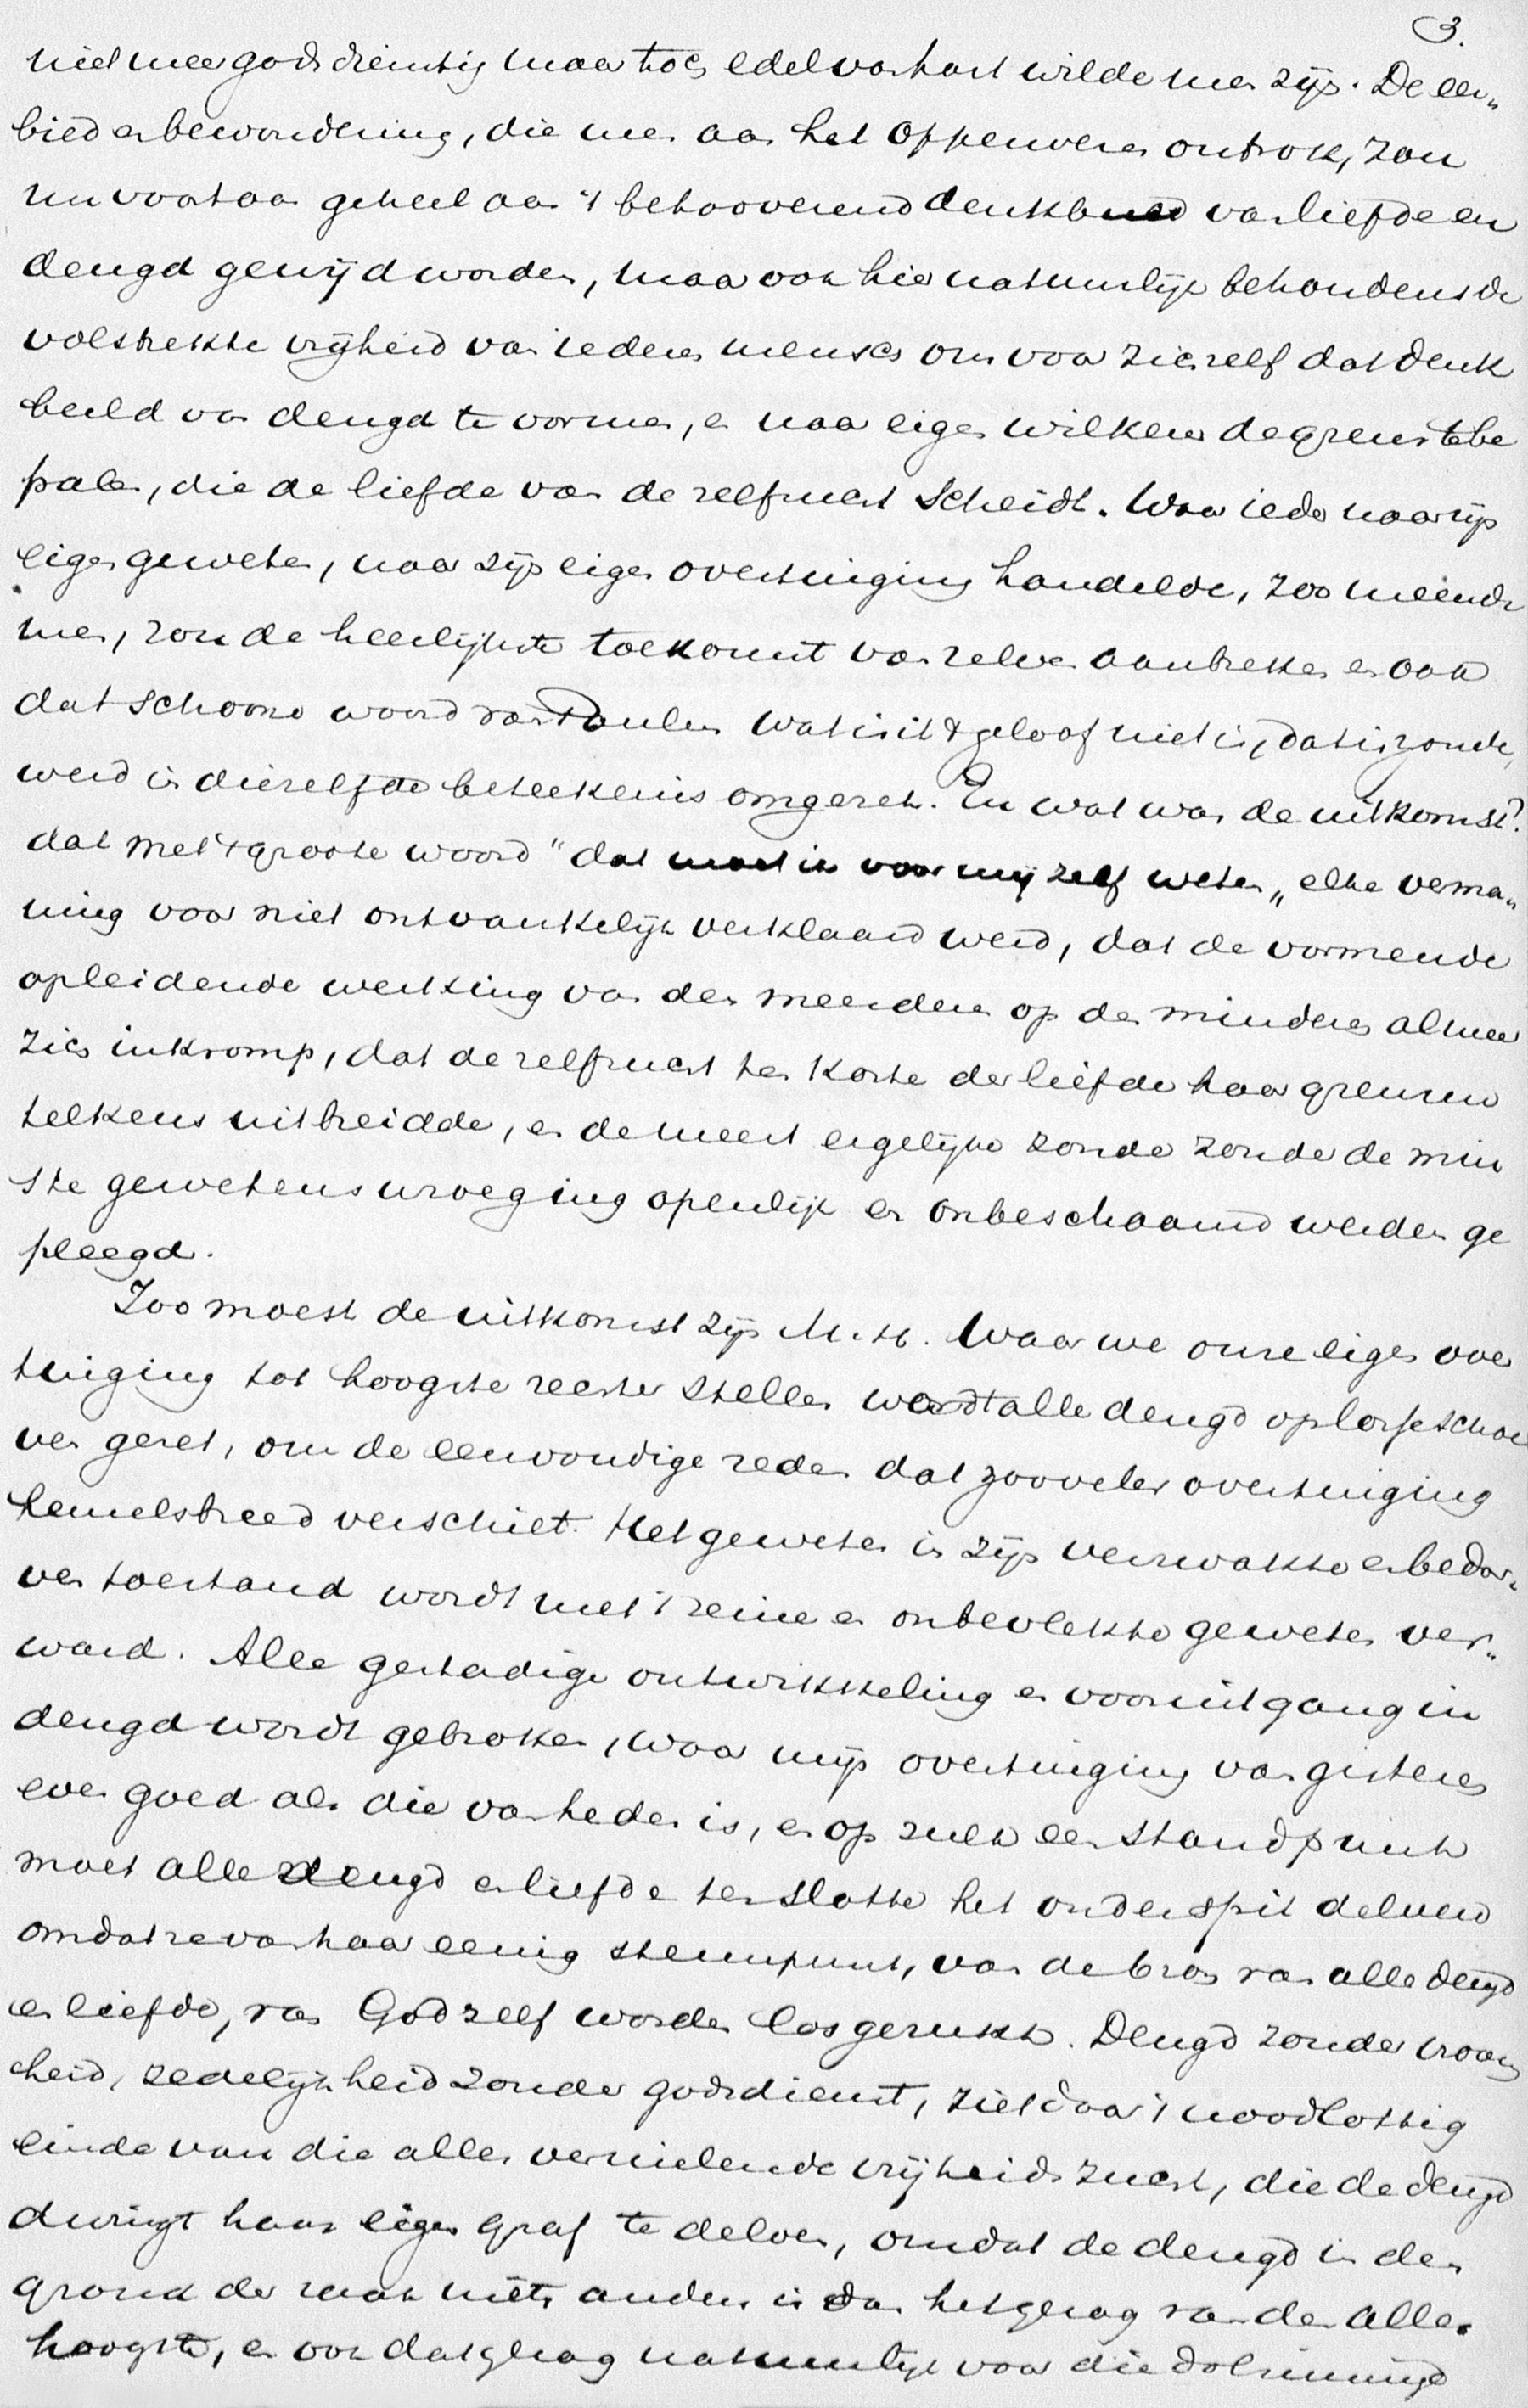 3.
niet meer godsdienstig maar toch edel van hart wilde men zijn. De eer„
bied en bewondering, die men aan het Opperwezen onttrok, zou
nu voortaan geheel aan 't betooverend denkbeeld van liefde en
deugd gewijd worden, maar ook hier natuurlijk behoudens de
volstrekte vrijheid van iederen mensch om voor zich zelf dat denk
beeld van deugd te vormen, en naar eigen willekeur de grens te be
palen, die de liefde van de zelfzucht scheidt. Waar ieder naar zijn
eigen geweten, naar zijn eigen overtuiging handelde, zoo meende
men, zou de heerlijkste toekomst van zelven aanbreken en ook
dat schoone woord van Paulus wat uit 't geloof niet is, dat is zonde,
werd in diezelfde beteekenis omgezet. En wat was de uitkomst?
dat met 't groote woord "dat moet ik voor mij zelf weten„ elke verma„
ning voor niet ontvankelijk verklaard werd, dat de vormende
opleidende werking van den meerdere op den mindere al meer
zich inkromp, dat de zelfzucht ten koste der liefde haar grenzen
telkens uitbreidde, en de meest ergelijke zonde zonder de min
ste gewetenswroeging openlijk en onbeschaamd werden ge
pleegd.
Zoo moest de uitkomst zijn M. H. Waar we onze eigen over
tuiging tot hoogste rechter stellen wordt alle deugd op losse schroe
ven gezet, om de eenvoudige reden dat zooveler overtuiging
hemelsbreed verschilt. Het geweten in zijn verzwakte en bedor„
ven toestand wordt met 't reine en onbevlekte geweten ver„
ward. Alle gestadige ontwikkeling en vooruitgang in
deugd wordt gebroken, waar mijn overtuiging van gisteren
even goed als die van heden is, en op zulk een standpunt
moet alle deugd en liefde ten slotte het onderspit delven
omdat ze van haar eenig steunpunt, van de bron van alle deugd
en liefde, van God zelf worden losgerukt. Deugd zonder vroom
heid, zedelijkheid zonder godsdienst, ziet daar 't noodlottig
einde van die alles vernielende vrijheidszucht, die de deugd
dwingt haar eigen graf te delven, omdat de deugd in den
grond der zaak niets anders is dan het gezag van den Aller
hoogste, en ook dat gezag natuurlijk voor die dolzinnige